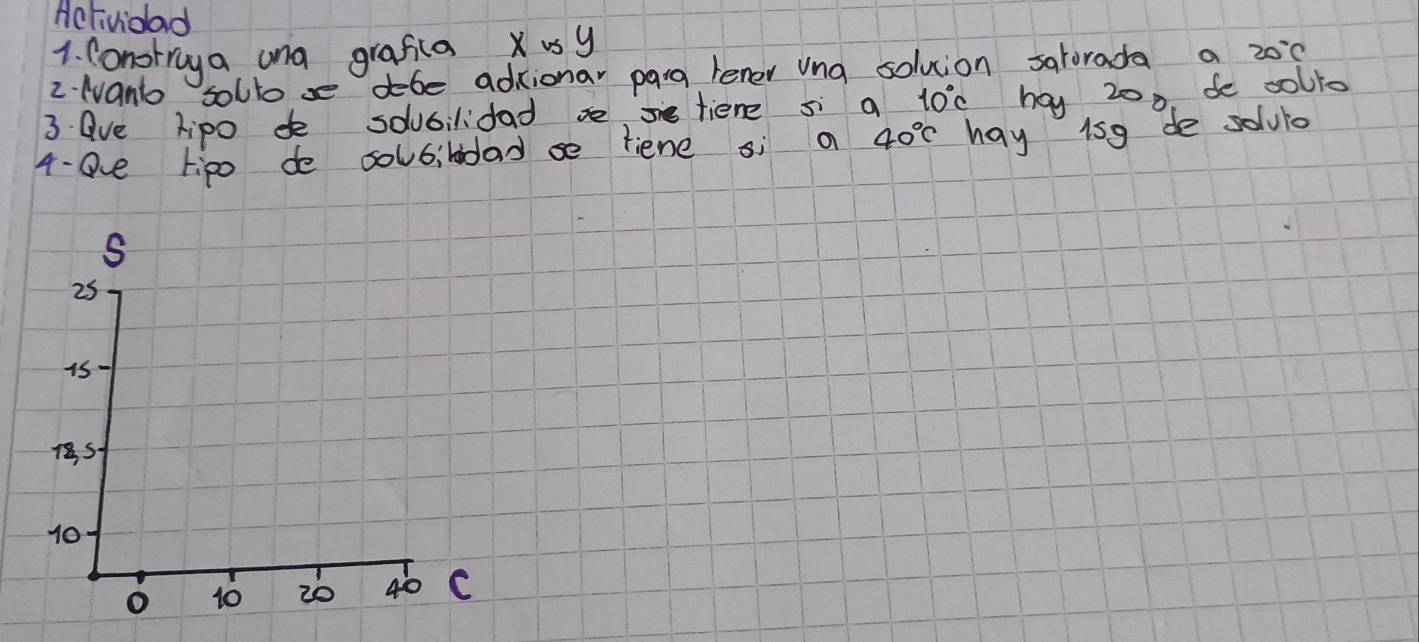 Actividad
1. Construya una grafica X vs y
2. Cuanto soluto se debe adicionar para tener una solucion saturada a 20°C
3. Que tipo de solubilidad se tiene si a 10°c hay 20g de soluto
4- Que tipo de solubilidad se tiene si a 40°c hay 15g de soluto
S
25
15
12,5
10
0 10 20 40 C